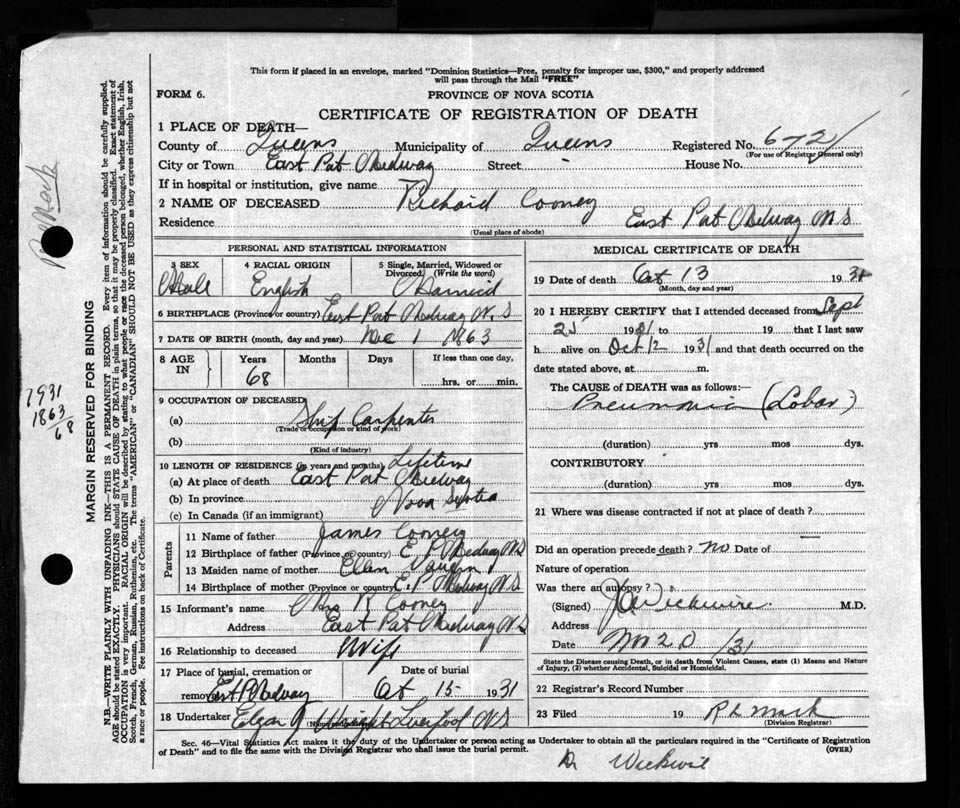 This form if placed in an envelope, marked "Dominion Statistics—Free, penalty for improper use, $300," and properly addressed
will pass through the Mail "FREE"
FORM 6.
PROVINCE OF NOVA SCOTIA
CERTIFICATE OF REGISTRATION OF DEATH
1 PLACE OF DEATH—
County of Queens Municipality of Queens Registered No. 672
(For use of Registrar General only)
City or Town East Port Medway Street - House No.
If in hospital or institution, give name
2 NAME OF DECEASED Richard Cooney
Residence East Port Medway N.S
(Usual place of abode)
PERSONAL AND STATISTICAL INFORMATION
3 SEX
Male
4 RACIAL ORIGIN
English
5 Single, Married, Widowed or
Divorced (Write the word)
Married
6 BIRTHPLACE (Province or country) East Port Medway N.S
7 DATE OF BIRTH (month, day and year) Dec 1 1863
8 AGE
IN
Years
68
Months
Days
If less than one day,
hrs. or min.
9 OCCUPATION OF DECEASED
(a) Ship Carpenter
(Trade or occupation or kind of work)
(b)
(Kind of industry)
10 LENGTH OF RESIDENCE (in years and months) Lifetime
(a) At place of death East Port Medway
(b) In province Nova Scotia
(c) In Canada (if an immigrant)
Parents
11 Name of father James Cooney
12 Birthplace of father (Province or country) E P Medway N.S
13 Maiden name of mother Ellen Vaughn
14 Birthplace of mother (Province or country) E. P Medway N.S
15 Informant's name Mrs R Cooney
Address East Port Medway N.S
16 Relationship to deceased Wife
17 Place of burial, cremation or
removal East P Medway
Date of burial
Oct 15 1931
18 Undertaker Elgar Wright Liverpool N.S
MEDICAL CERTIFICATE OF DEATH
19 Date of death Oct 13 1931
(Month, day and year)
20 I HEREBY CERTIFY that I attended deceased from Sept
25 1931 to 19 that I last saw
h alive on Oct 12 1931 and that death occurred on the
date stated above, at m.
The CAUSE OF DEATH was as follows:—
Pneumonia (Lobar)
(duration) yrs mos dys.
CONTRIBUTORY
(duration) yrs mos dys.
21 Where was disease contracted if not at place of death?
Did an operation precede death? No Date of
Nature of operation
Was there an autopsy?
(Signed) Wickwire M.D.
Address
Date Nov 20 /31
State the Disease causing Death, or in death from Violent Causes, state (1) Means and Nature
of Injury, (2) whether Accidental, Suicidal or Homicidal.
22 Registrar's Record Number
23 Filed 19 R L Mack
(Division Registrar)
Sec. 46—Vital Statistics Act makes it the duty of the Undertaker or person acting as Undertaker to obtain all the particulars required in the "Certificate of Registration
of Death" and to file the same with the Division Registrar who shall issue the burial permit.
(OVER)
Dr Wickwire
MARGIN RESERVED FOR BINDING
N.B.—WRITE PLAINLY WITH UNFADING INK—THIS IS A PERMANENT RECORD. Every item of information should be carefully supplied.
AGE should be stated EXACTLY. PHYSICIANS should STATE CAUSE OF DEATH in plain terms, so that it may be properly classified. Exact statement of
OCCUPATION is very important. RACIAL ORIGIN will be described by stating to what people or race the deceased person belonged, whether English, Irish,
Scotch, French, German, Russian, Ruthenian, etc. The terms "AMERICAN" or "CANADIAN" SHOULD NOT BE USED as they express citizenship but not
a race or people. See instructions on back of Certificate.
1931
1863
68